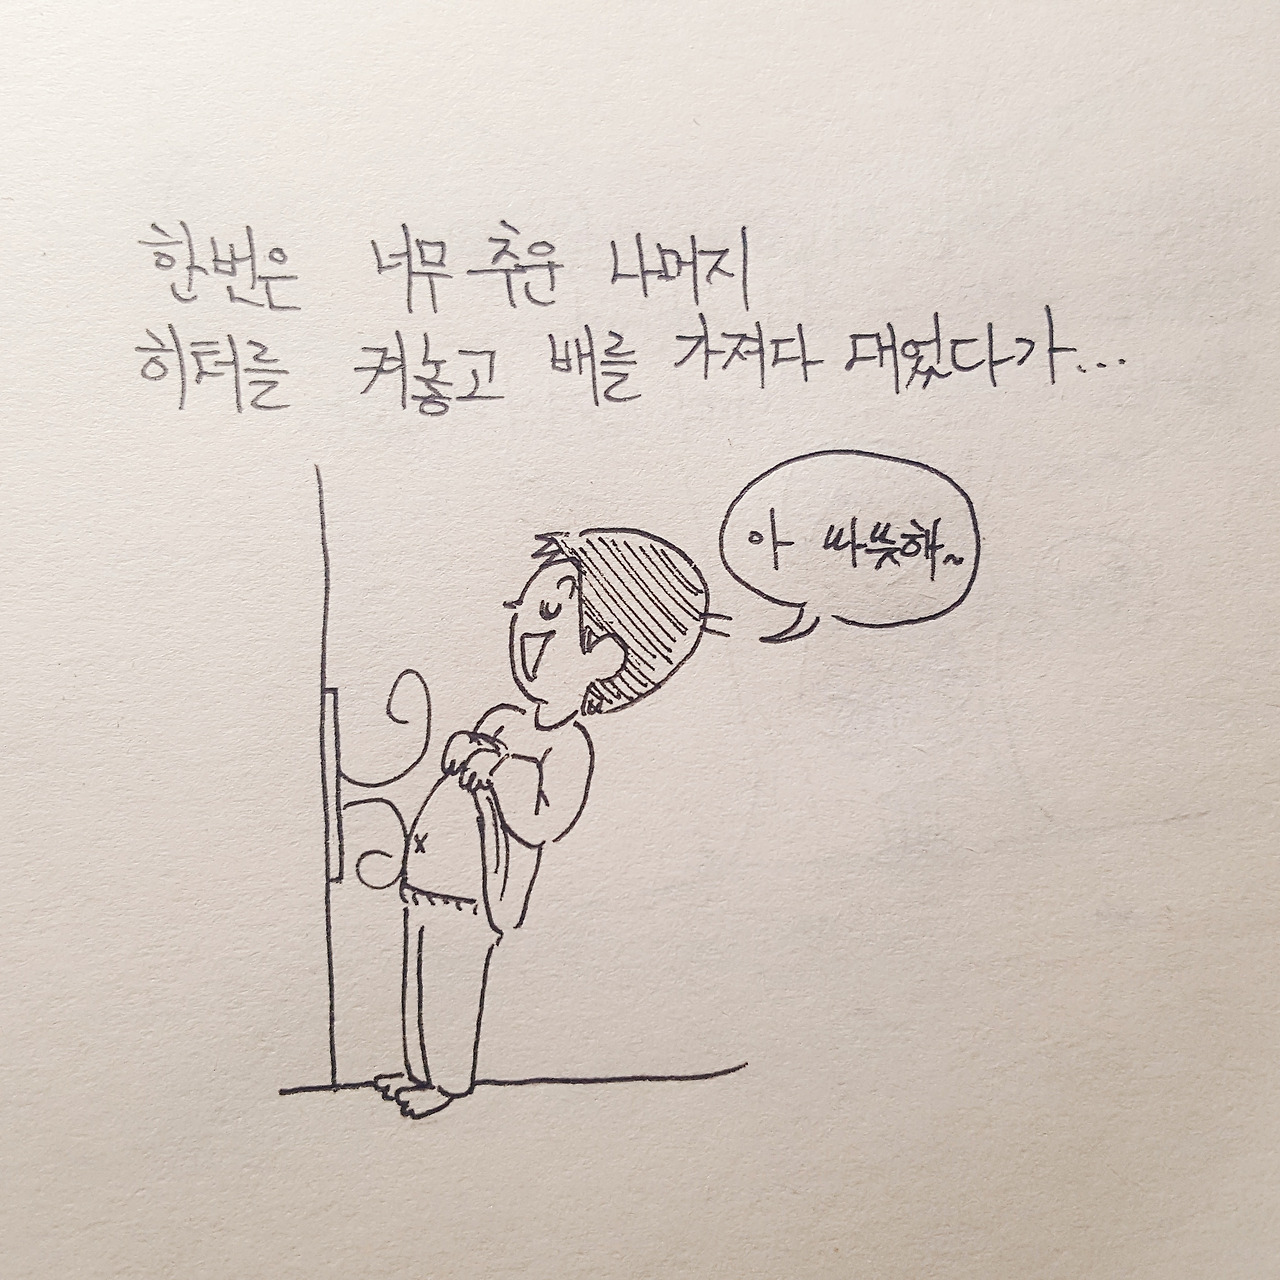 한번은 너무 추운 나머지
히터를 켜놓고 배를 가져다 대었다가...
아 따뜻해~